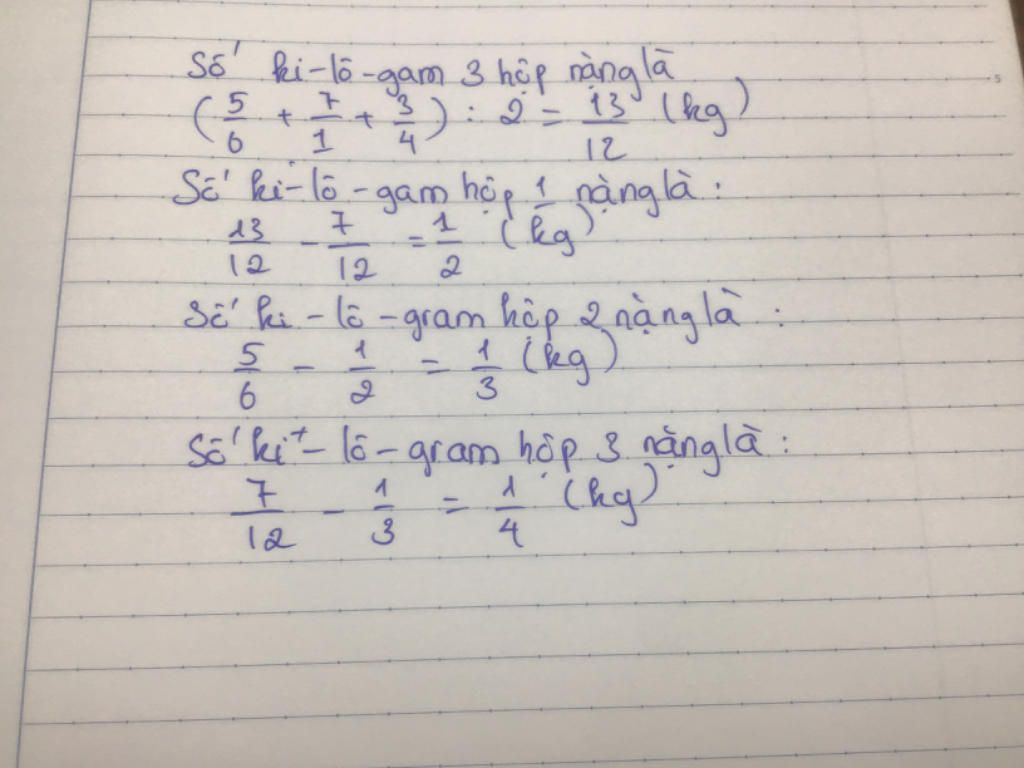 Số ki-lô-gam 3 hộp nặng là
(5/6 + 7/1 + 3/4) : 2 = 13/12 (kg)
Số ki-lô-gam hộp 1 nặng là :
13/12 - 7/12 = 1/2 (kg)
Số ki-lô-gram hộp 2 nặng là :
5/6 - 1/2 = 1/3 (kg)
Số ki-lô-gram hộp 3 nặng là :
7/12 - 1/3 = 1/4 (kg)